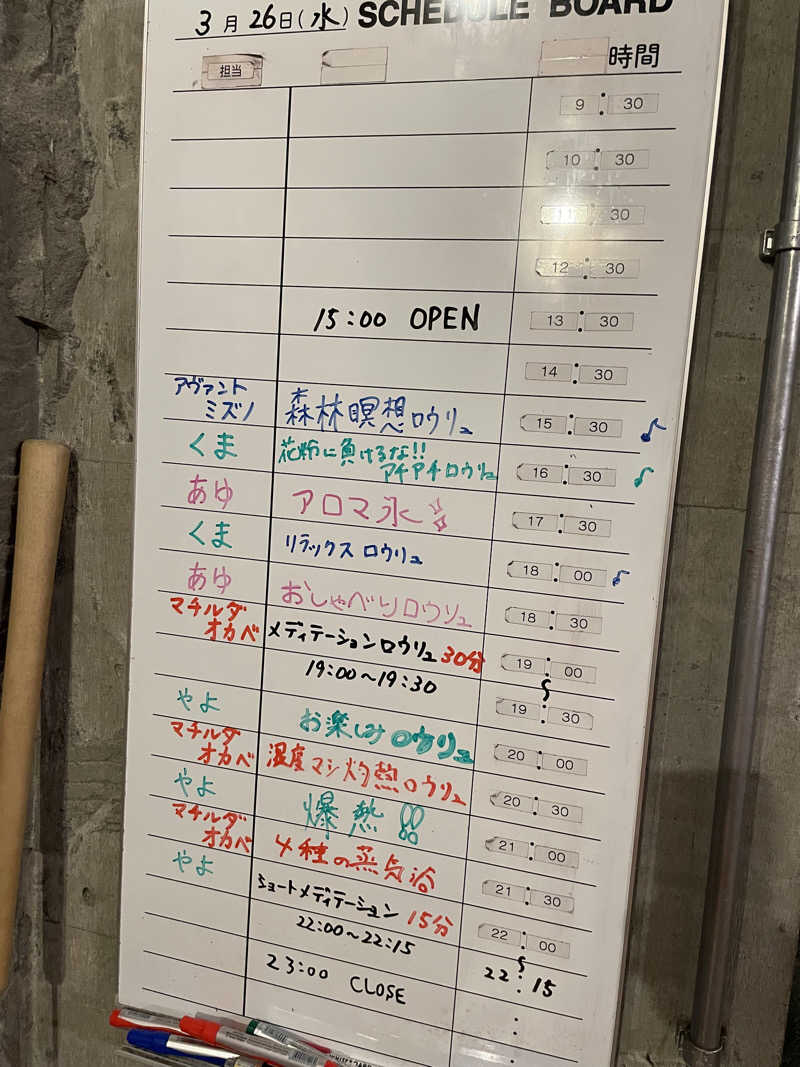 3月26日(水) SCHEDULE BOARD
担当 時間
9:30
10:30
11:30
12:30
15:00 OPEN 13:30
14:30
アヴァント
ミズノ 森林瞑想ロウリュ 15:30 ♪
くま 花粉に負けるな!!
アチアチロウリュ 16:30 ♪
あゆ アロマ氷 17:30
くま リラックスロウリュ 18:00 ♪
あゆ おしゃべりロウリュ 18:30
マチルダ
オカベ メディテーションロウリュ 30分 19:00
19:00〜19:30 〜 19:30
やよ お楽しみロウリュ 20:00
マチルダ
オカベ 湿度マシ灼熱ロウリュ 20:30
やよ 爆熱!! 21:00
マチルダ
オカベ 4種の蒸気浴 21:30
やよ ショートメディテーション 15分 22:00
22:00〜22:15 〜 22:15
23:00 CLOSE